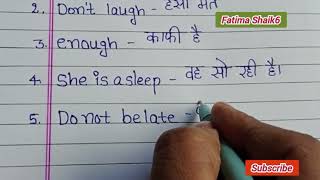 2. Don't laugh - हंसो मत
Fatima Shaik6
3. enough - काफी है
4. She is asleep - वह सो रही है।
5. Do not be late -
Subscribe